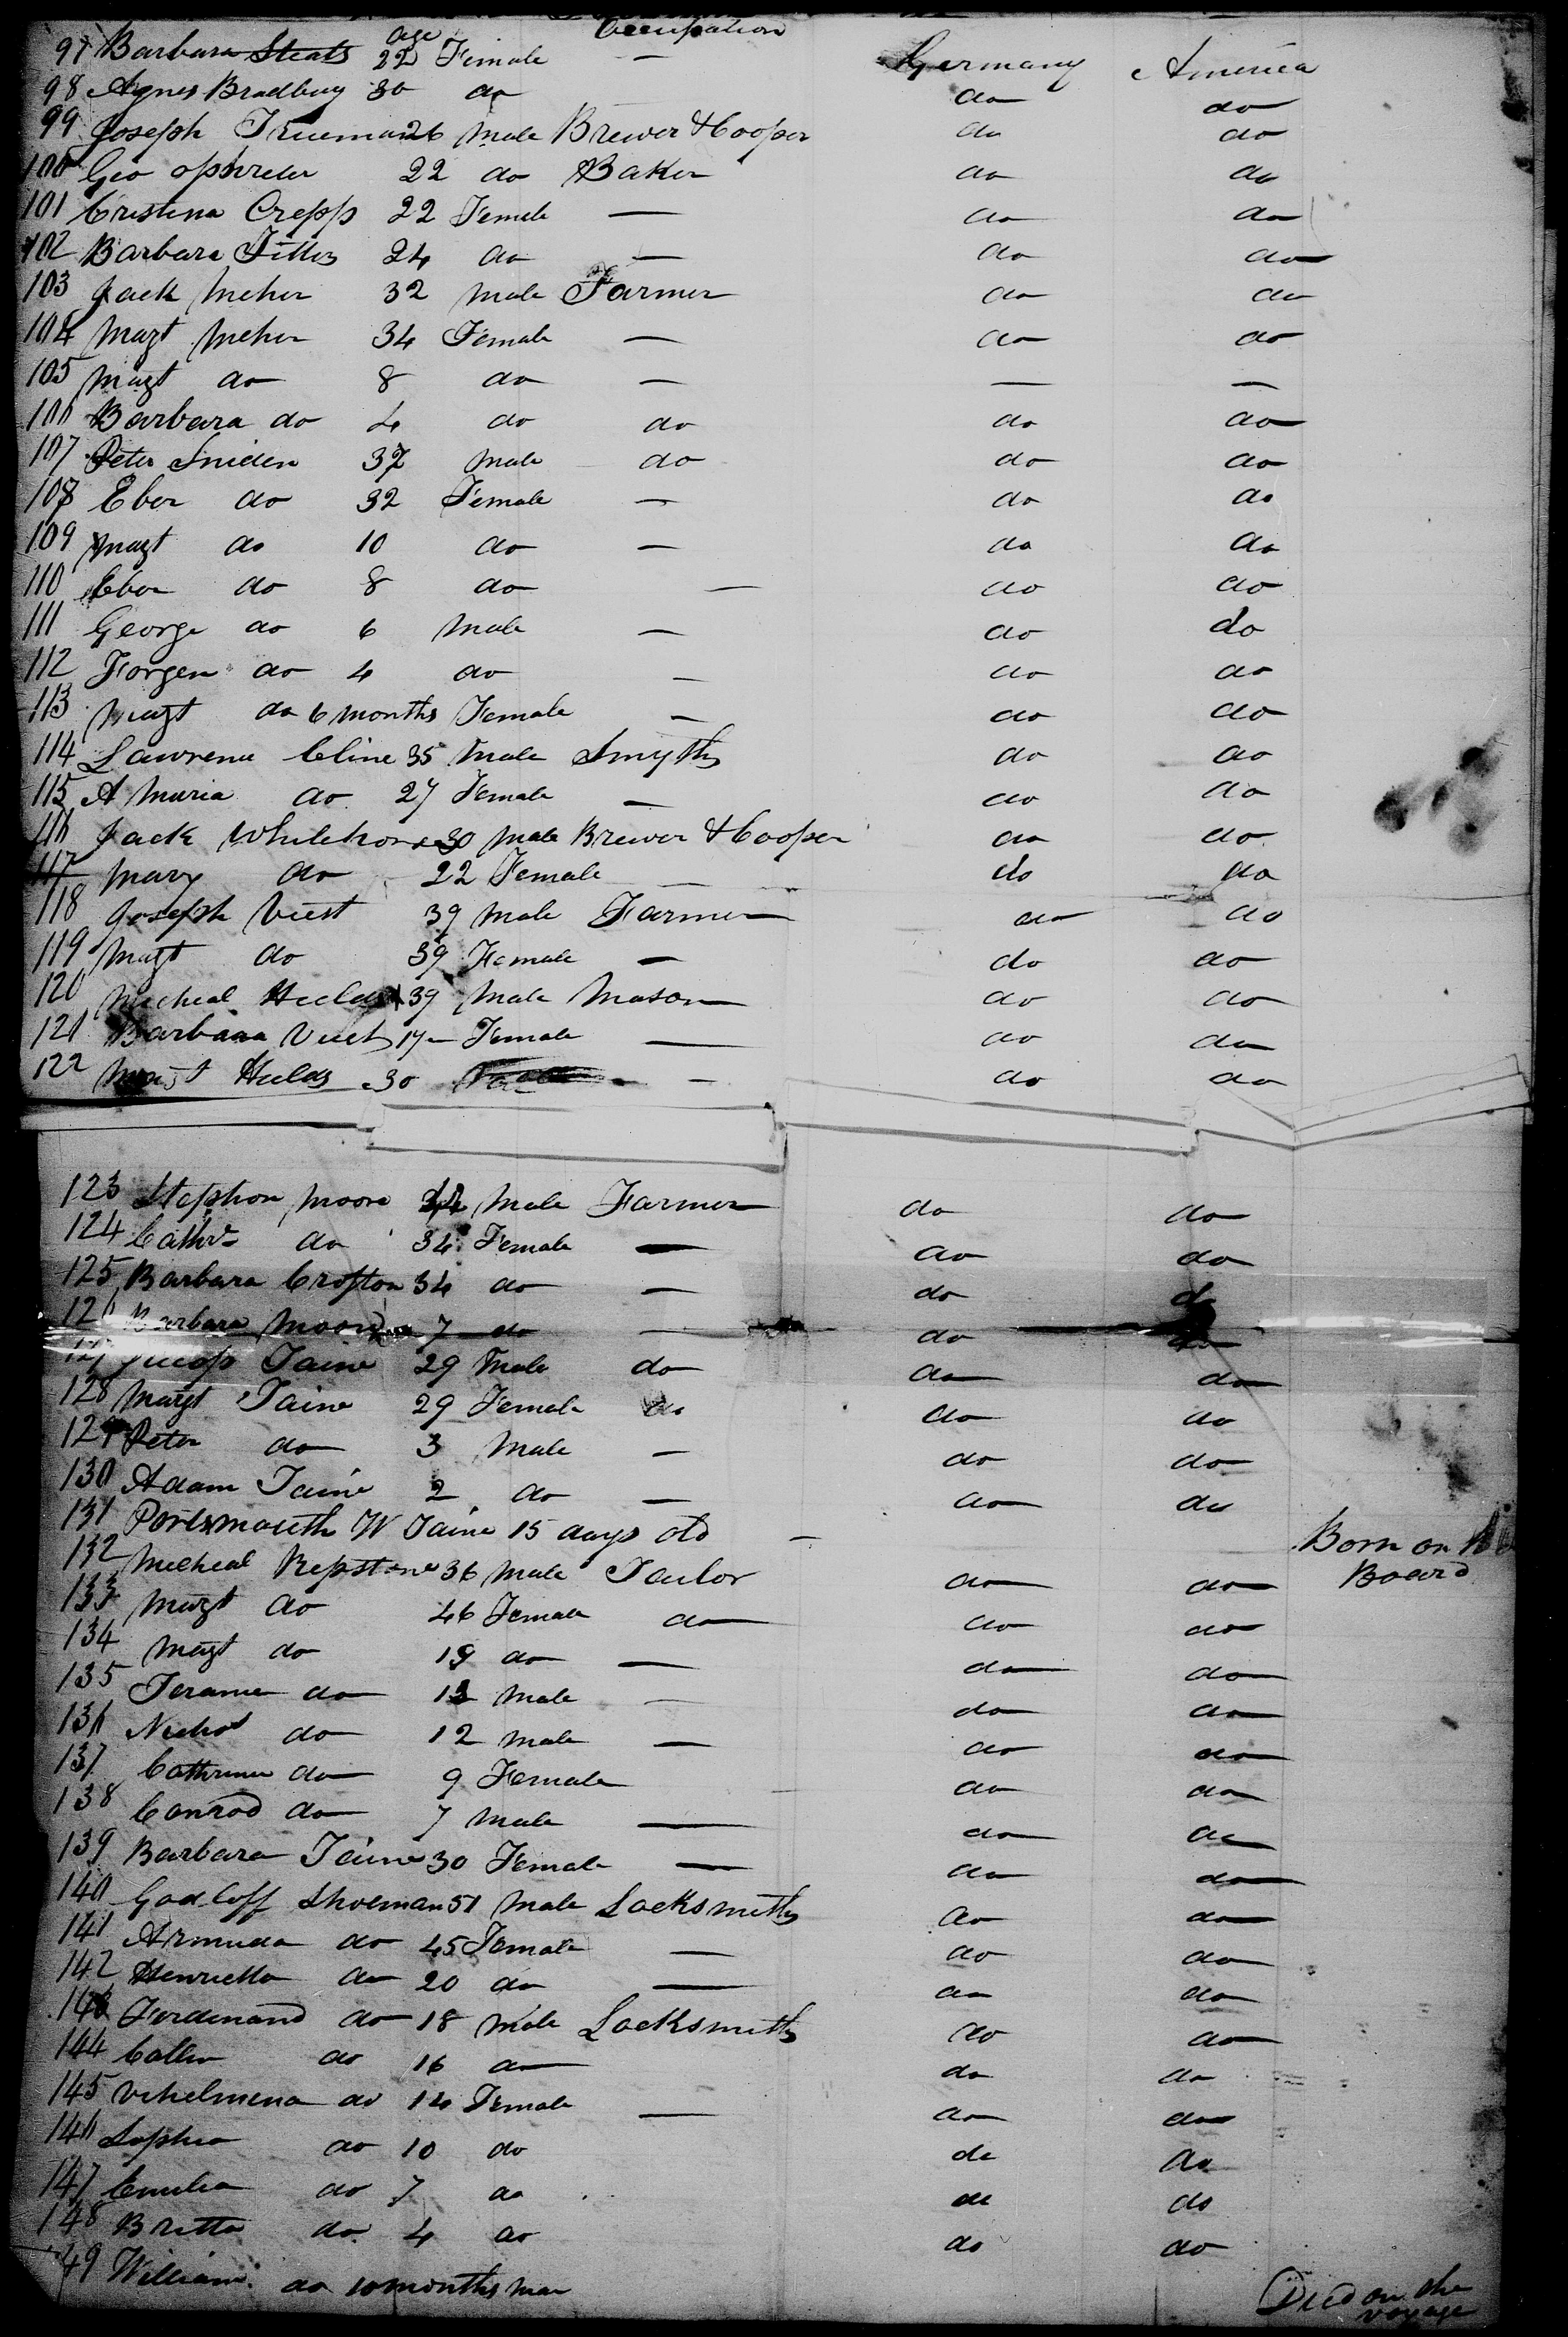 age Occupation
97 Barbara Steats 22 Female — Germany America
98 Agnes Bradbury 30 do do do
99 Joseph Trueman 26 Male Brewer & Cooper do do
100 Geo 22 do Baker do do
101 Cristina Crepp 22 Female — do do
102 Barbara 24 do — do do
103 Jack Meher 32 Male Farmer do do
104 Magt Meher 34 Female — do do
105 Magt do 8 do — — —
106 Barbara do 4 do do do do
107 Peter Sniden 37 Male do do do
108 Eber do 32 Female — do do
109 Magt do 10 do — do do
110 Eber do 8 do — do do
111 George do 6 Male — do do
112 Forgen do 4 do — do do
113 Magt do 6 months Female — do do
114 Lawrence Cline 35 Male Smyth do do
115 A Maria do 27 Female — do do
116 Jack 30 Male Brewer & Cooper do do
117 Mary do 22 Female — do do
118 Joseph Viest 39 Male Farmer do do
119 Magt do 39 Female — do do
120 Micheal 39 Male Mason do do
121 Barbara 17 Female — do do
122 Magt 30 — do do
123 Stephon Moore Male Farmer do do
124 do 34 Female — do do
125 Barbara Crofton 34 do — do do
126 Barbara Moore 7 do — do do
127 Taine 29 Male do do do
128 Magt Taine 29 Female do do do
129 Peter do 3 Male — do do
130 Adam Taine 2 do — do do
131 Portsmouth W Taine 15 days old — Born on
Board
132 Micheal Repstone 36 Male Tailor do do
133 Magt do 46 Female do do do
134 Magt do 19 do — do do
135 do 13 Male — do do
136 do 12 Male — do do
137 Cathrine do 9 Female do do
138 Conrod do 7 Male — do do
139 Barbara Taine 30 Female — do do
140 Godloff Shoeman 51 Male Locksmith do do
141 Armuda do 45 Female — do do
142 Henrietta do 20 do — do do
143 Ferdinand do 18 Male Locksmith do do
144 do 16 do do do
145 Vihelmena do 14 Female — do do
146 Sophia do 10 do do do
147 Emilia do 7 do do do
148 Britta do 4 do do do
149 William do 10 months Died on the
voyage